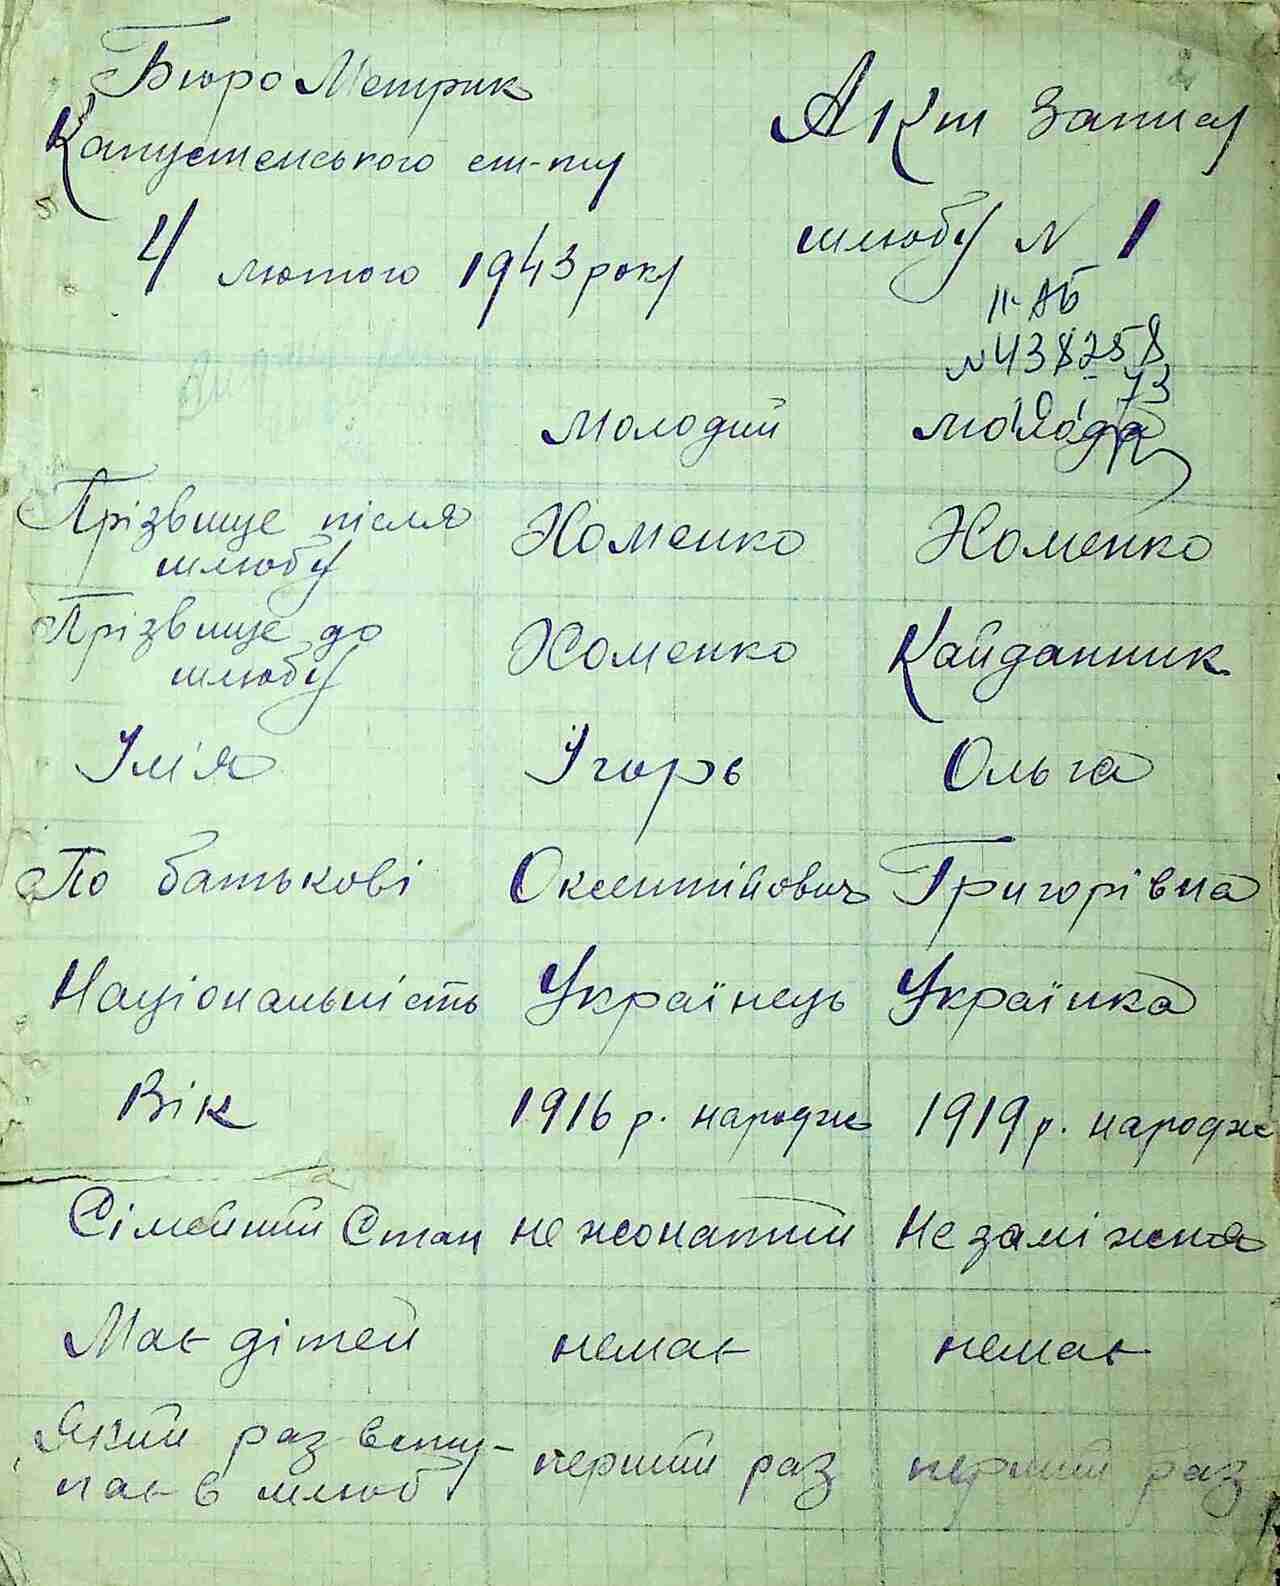 Бюро Метрик
Капустенського ст-ту
4 лютого 1943 року
Акт запису
шлюбу N 1
II-АБ
N 438258
73
молодий молода
Прізвище після Хоменко Хоменко
шлюбу
Прізвище до Хоменко Кайданник
шлюбу
Імія Ігорь Ольга
По батькові Оксентійович Григорівна
Національність Українець Українка
Вік 1916 р. народж 1919 р. народж
Сімейний Стан не жонатий Не заміжня
Має дітей немає немає
Який раз всту- перший раз перший раз
пає в шлюб